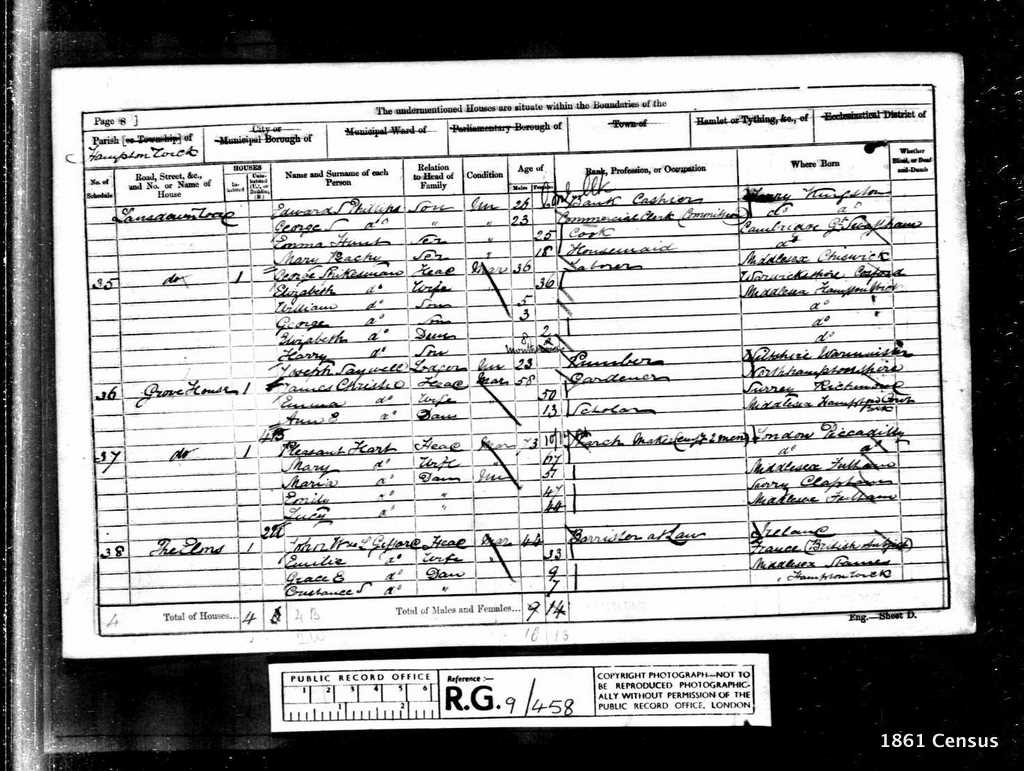 The undermentioned Houses are situate within the Boundaries of the
Page 8 ]
Parish [or Township] of
City or Municipal Borough of
Municipal Ward of
Parliamentary Borough of
Town of
Hamlet or Tything, &c., of
Ecclesiastical District of
Hampton Wick
No. of Schedule
Road, Street, &c., and No. or Name of House
HOUSES
Name and Surname of each Person
Relation to Head of Family
Condition
Age of
Males
Rank, Profession, or Occupation
Where Born
Whether Blind, or Deaf-and-Dumb
Edward S Phillips Son Un 26 Bank Cashier
George S do do " 23 Commercial Clerk do do
Emma Hurst Ser " 25 Cook
Mary Peachy Ser " 18 Housemaid do
35 do 1 George Head Mar 36 Laborer Middlesex Chiswick
Elizabeth do Wife 36 Warwickshire
William do Son 5 Middlesex Hampton Wick
George do Son 3 do
Elizabeth do Daur 2 do
Harry do Son 8 months do
Joseph Lodger Un 23 Plumber Wiltshire Warminster
36 Grove House 1 James Christie Head Mar 58 Gardener Northamptonshire
Emma do Wife 50 Surrey Richmond
Ann E do Daur 13 Scholar Middlesex Hampton Wick
37 do 1 Pleasant Hart Head Mar 73 Starch Maker London Piccadilly
Mary do Wife " 67 do do
Maria do Daur Un 51 Middlesex Fulham
Emily do " 47 Surry Clapham
Lucy do " 44 Middlesex Fulham
38 The Elms 1 John Wm Giffard Head Mar 44 Barrister at Law Ireland
Emilie do Wife " 33 France (British subject)
Grace E do Daur 9 Middlesex Staines
Constance S do " 7 " Hampton Wick
4 Total of Houses... 4 4B Total of Males and Females... 9 14
Eng.—Sheet D.
PUBLIC RECORD OFFICE
1 2 3 4 5 6
1 2
Reference :—
R.G. 9/458
COPYRIGHT PHOTOGRAPH—NOT TO
BE REPRODUCED PHOTOGRAPHIC-
ALLY WITHOUT PERMISSION OF THE
PUBLIC RECORD OFFICE, LONDON
1861 Census